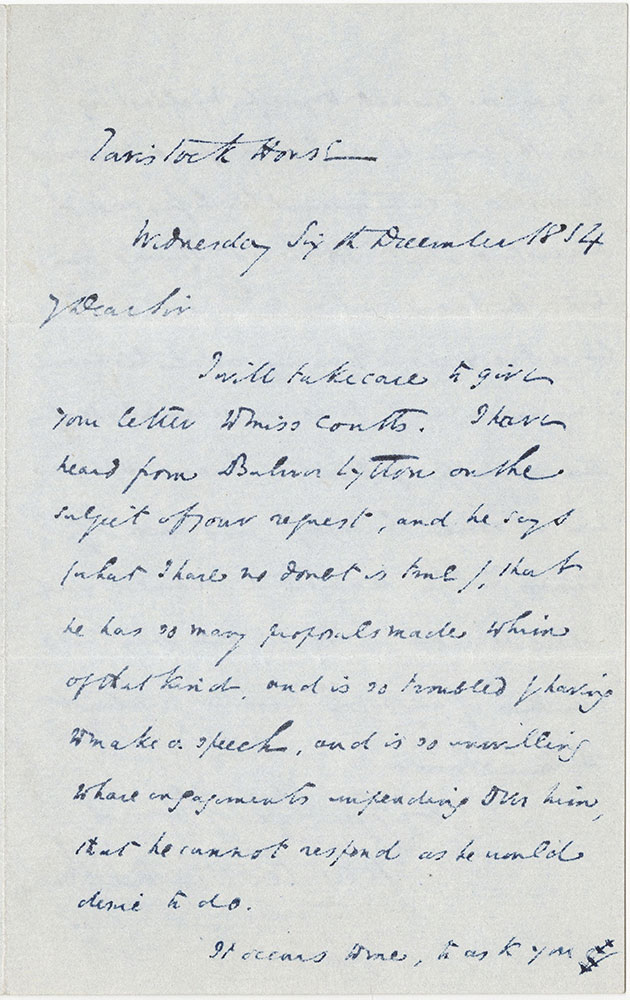 Tavistock House
Wednesday Sixth December 1854
My Dear Sir
I will take care to give
your letter to Miss Coutts. I have
heard from Bulwer Lytton on the
subject of your request, and he says
(what I have no doubt is true), that
he has so many proposals made to him
of that kind, and is so troubled by having
to make a speech, and is so unwilling
to have engagements impending over him,
that he cannot respond as he would
desire to do.
It occurs to me, to ask you